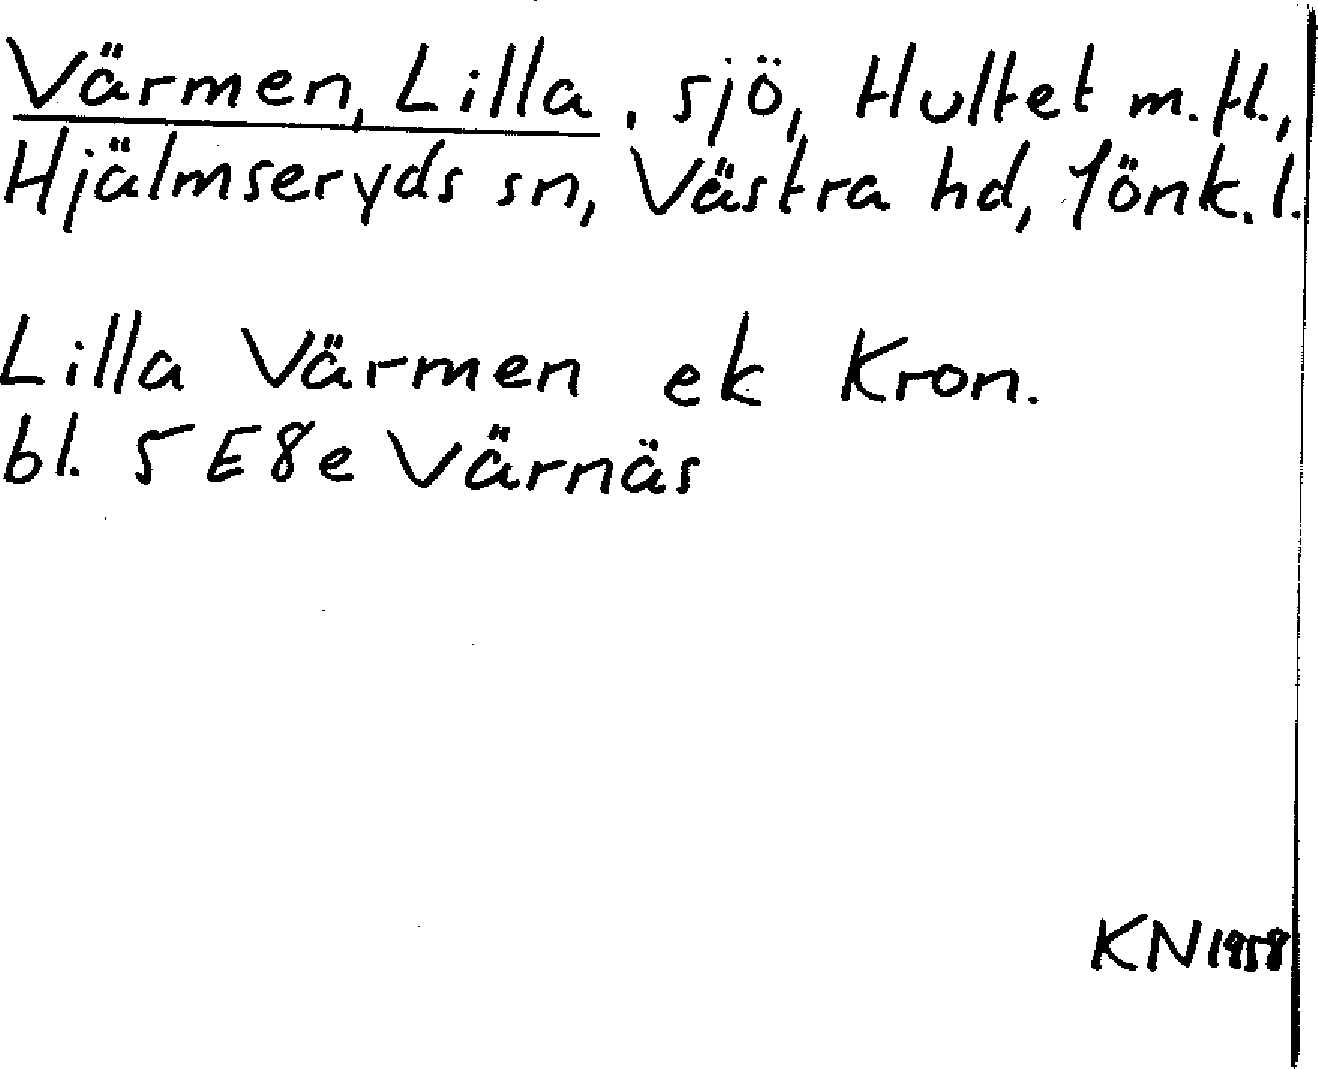 Värmen, Lilla, sjö, Hultet m.fl.,
Hjälmseryds sn, Västra hd, Jönk. l.
Lilla Värmen ek Kron.
bl. 5 E8e Värnäs
KN 1958